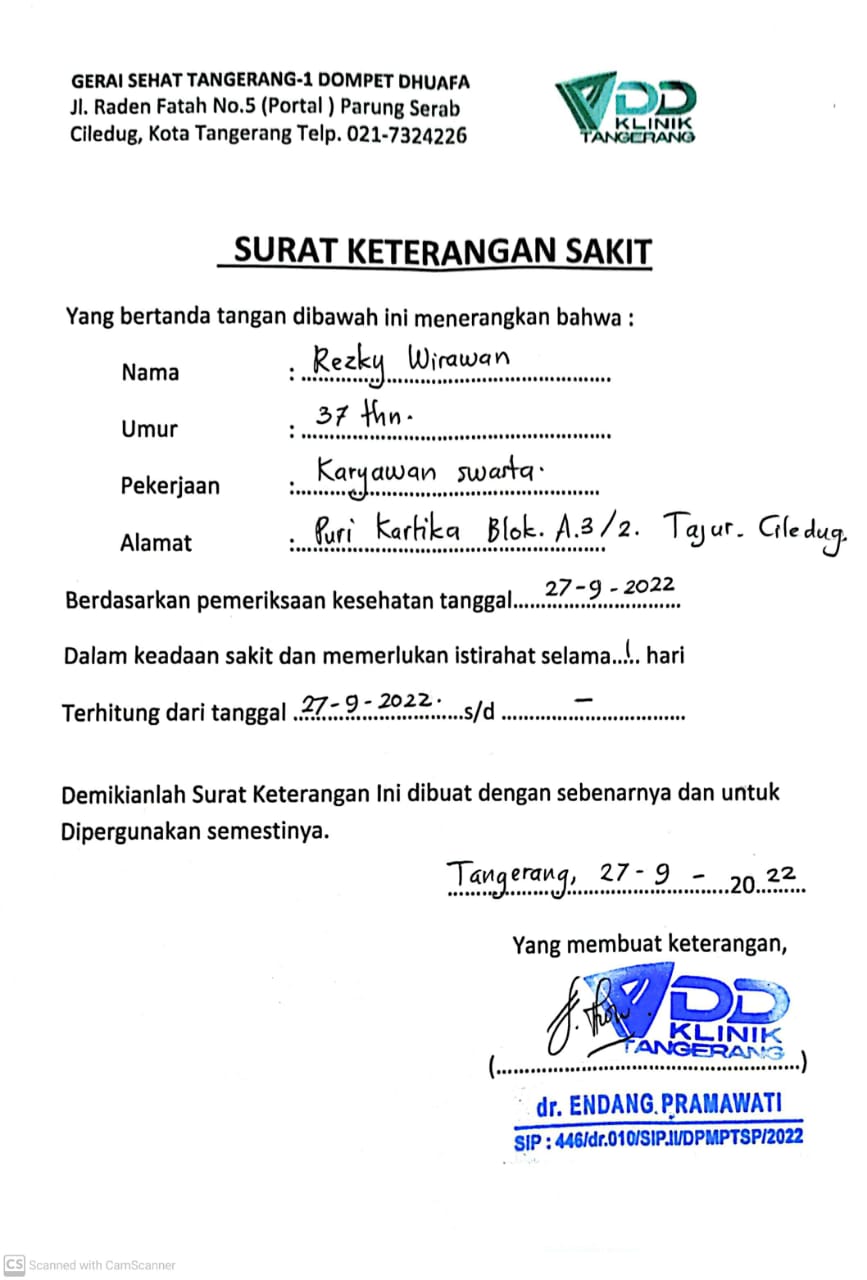 GERAI SEHAT TANGERANG-1 DOMPET DHUAFA
Jl. Raden Fatah No.5 (Portal ) Parung Serab
Ciledug, Kota Tangerang Telp. 021-7324226
DD
KLINIK
TANGERANG
SURAT KETERANGAN SAKIT
Yang bertanda tangan dibawah ini menerangkan bahwa :
Nama : Rezky Wirawan
Umur : 37 thn.
Pekerjaan : Karyawan swarta.
Alamat : Puri Kartika Blok. A.3/2. Tajur. Ciledug.
Berdasarkan pemeriksaan kesehatan tanggal.....27-9-2022
Dalam keadaan sakit dan memerlukan istirahat selama..1.. hari
Terhitung dari tanggal ..27-9-2022.....s/d ..... – .....
Demikianlah Surat Keterangan Ini dibuat dengan sebenarnya dan untuk
Dipergunakan semestinya.
Tangerang, 27-9 - 2022
Yang membuat keterangan,
DD
KLINIK
TANGERANG
(..........)
dr. ENDANG PRAMAWATI
SIP : 446/dr.010/SIP.II/DPMPTSP/2022
CS Scanned with CamScanner